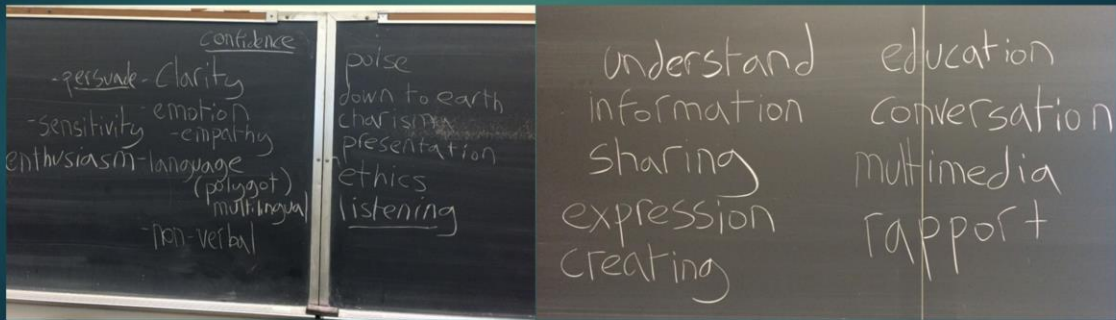 confidence
-persuade - Clarity
-emotion
-sensitivity -empathy
enthusiasm-language
(polygot)
multilingual
-non-verbal
poise
down to earth
charisma
presentation
ethics
listening
understand
information
sharing
expression
creating
education
conversation
multimedia
rapport